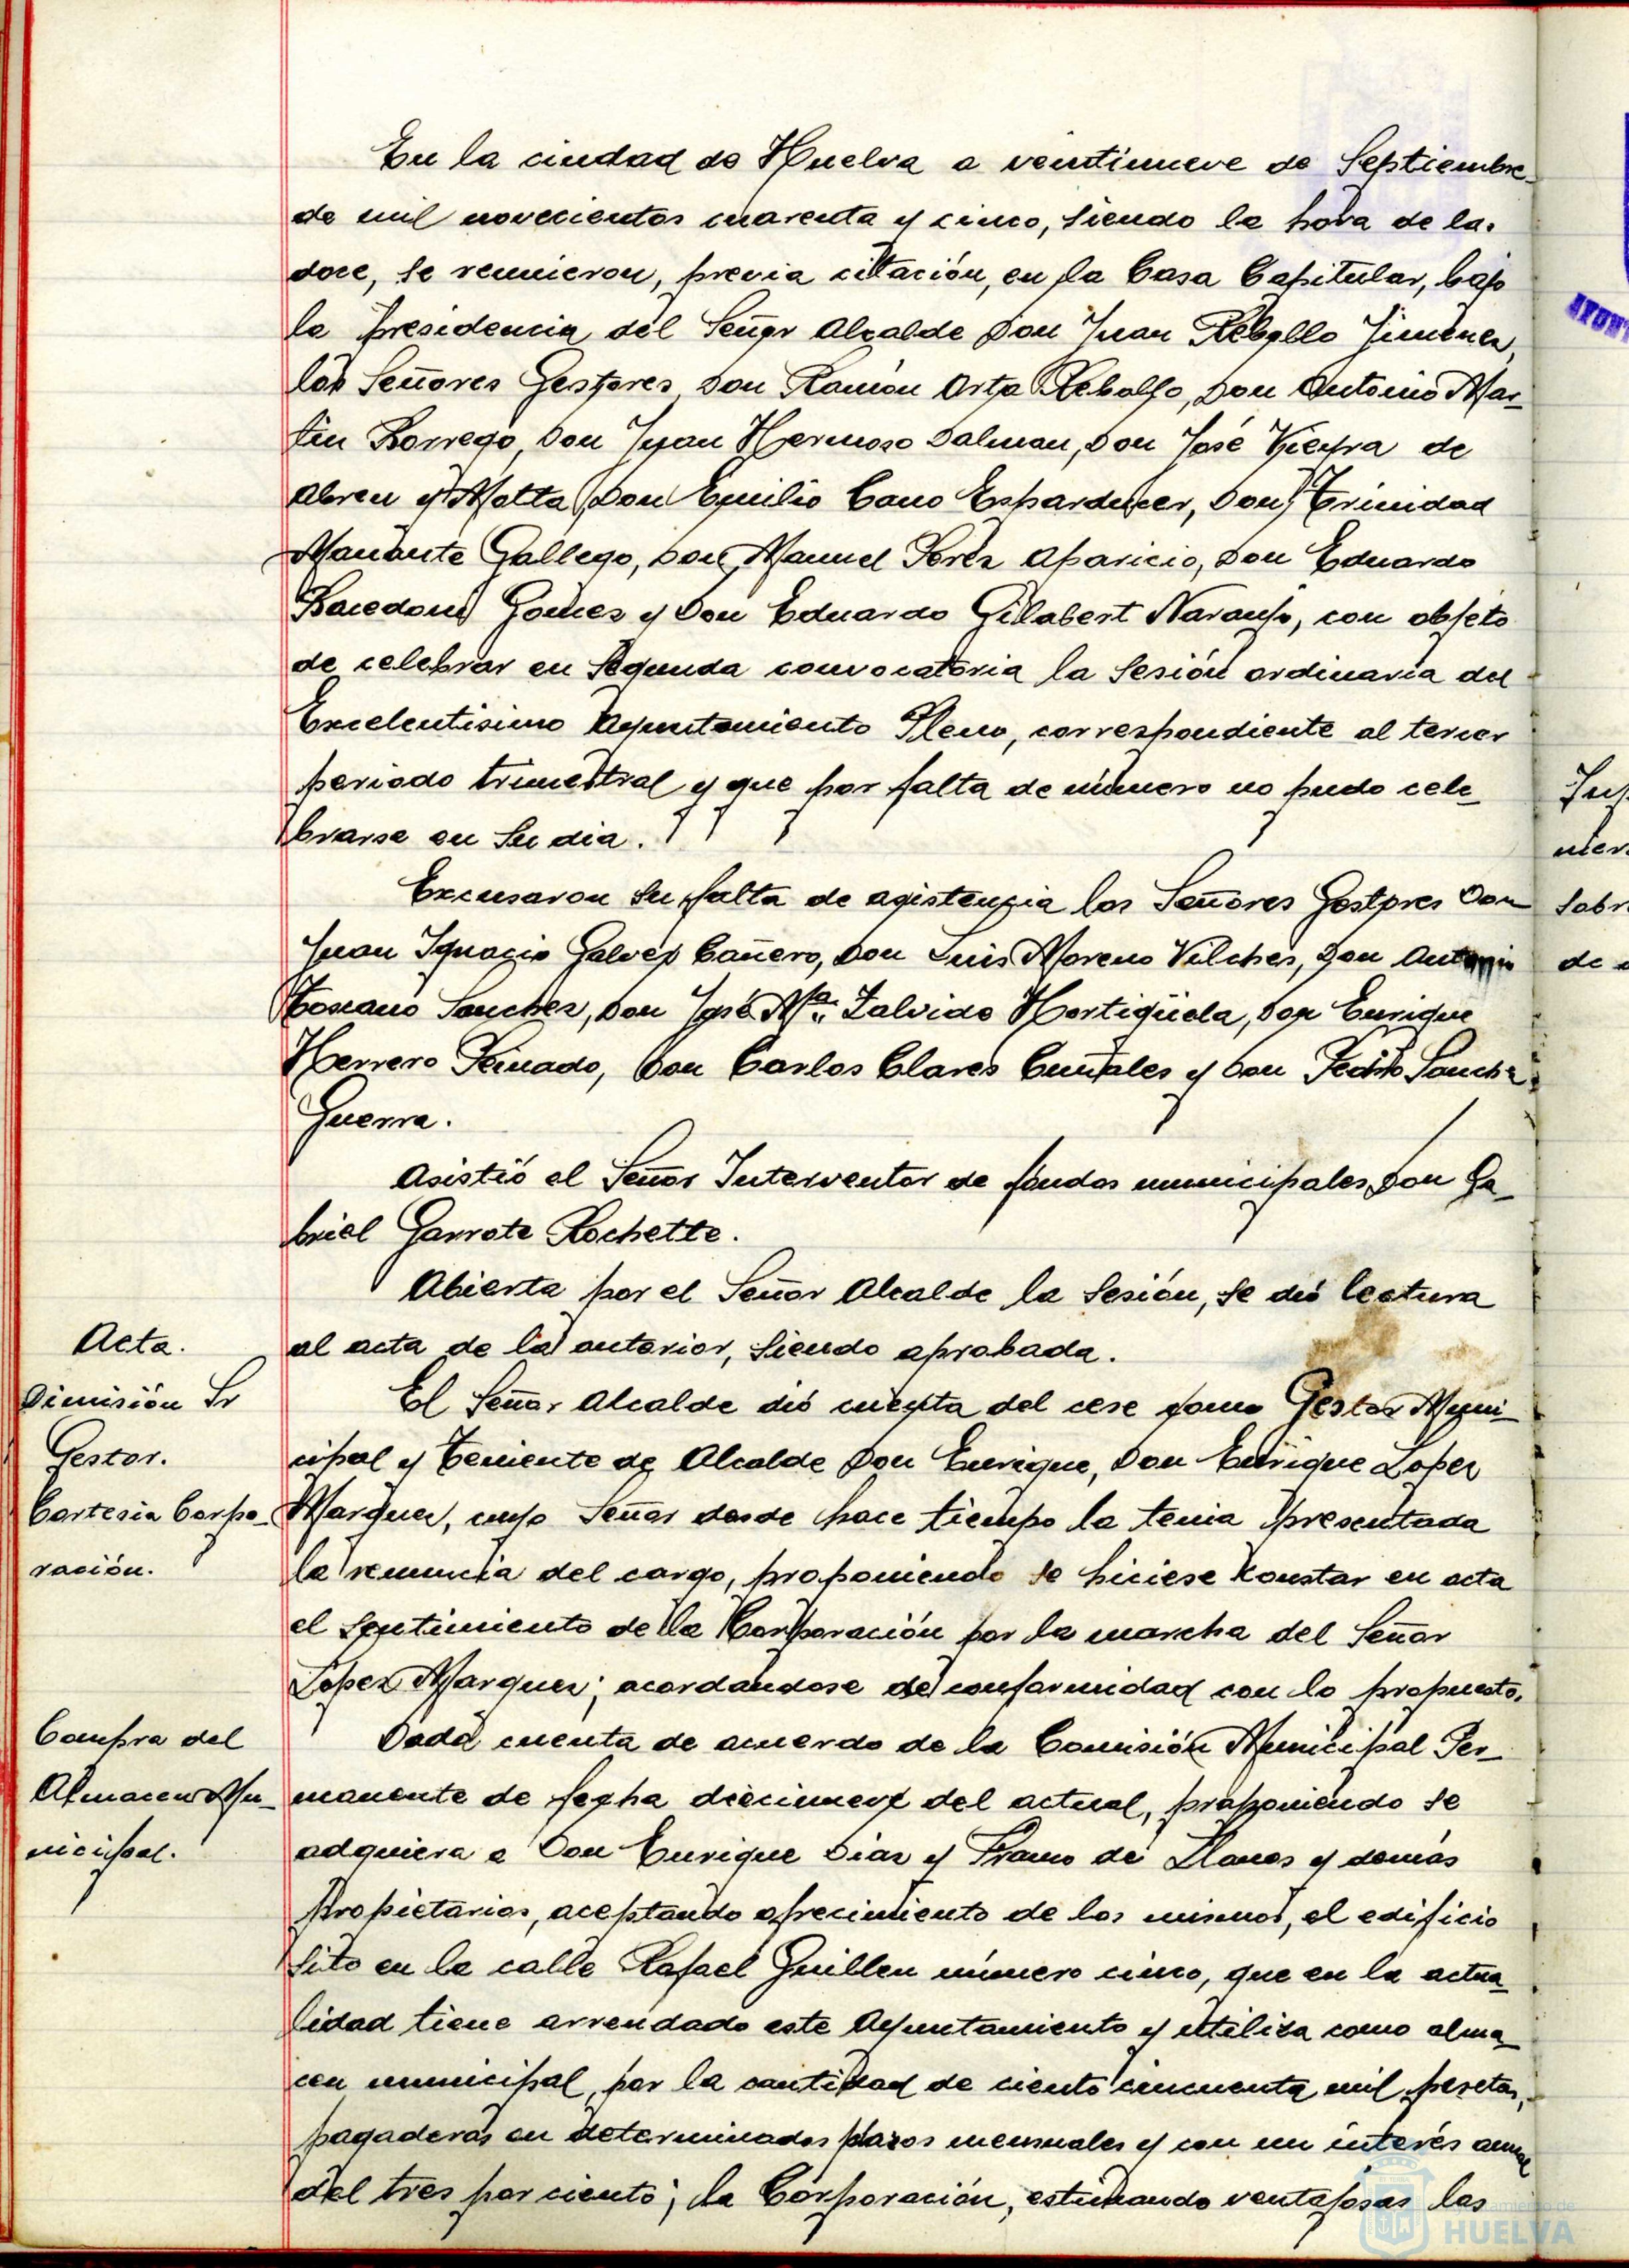 En la ciudad de Huelva a veintinueve de Septiembre
de mil novecientos cuarenta y cinco, siendo la hora de las
doce, se reunieron, previa citación, en la Casa Capitular, bajo
la presidencia del Señor Alcalde Don Juan Rebollo Jimenez,
los Señores Gestores, Don Ramón Orta Rebollo, Don Antonio Mar-
tin Borrego, Don Juan Hermoso Dalman, Don José Vieyra de
Abreu y Motta, Don Emilio Cano Esparducer, Don Trinidad
Gallego, Don Manuel Perez Aparicio, Don Eduardo
Gomez y Don Eduardo Gilabert Naranjo, con objeto
de celebrar en segunda convocatoria la Sesión ordinaria del
Excelentisimo Ayuntamiento Pleno, correspondiente al tercer
periodo trimestral y que por falta de número no pudo cele-
brarse en su dia.
Excusaron su falta de asistencia los Señores Gestores Don
Juan Ignacio Galvez Cañero, Don Luis Moreno Vilches, Don Antonio
Toscano Sanchez, Don José Mª Zalvide Hortigüela, Don Enrique
Herrero Peinado, Don Carlos Clares y Don Pedro Sanchez
Guerra.
Asistió el Señor Interventor de fondos municipales Don Ga-
briel Garrote Rochette.
Abierta por el Señor Alcalde la sesión, se dió lectura
Acta.
al acta de la anterior, siendo aprobada.
Dimisión Sr
Gestor.
Cortesia Corpo-
ración.
El Señor Alcalde dió cuenta del cese como Gestor Muni-
cipal y Teniente de Alcalde Don Enrique, Don Enrique Lopez
Marquez, cuyo Señor desde hace tiempo la tenia presentada
la renuncia del cargo, proponiendo se hiciese constar en acta
el sentimiento de la Corporación por la marcha del Señor
Lopez Marquez; acordandose de conformidad con lo propuesto.
Compra del
Almacen Mu-
nicipal.
Dada cuenta de acuerdo de la Comisión Municipal Per-
manente de fecha diecinueve del actual, proponiendo se
adquiera a Don Enrique Diaz y Franco de Llanos y demás
propietarios, aceptando ofrecimiento de los mismos, el edificio
sito en la calle Rafael Guillen número cinco, que en la actua-
lidad tiene arrendado este Ayuntamiento y utiliza como alma-
cen municipal, por la cantidad de ciento cincuenta mil pesetas,
pagaderas en determinados plazos mensuales y con un interés anual
del tres por ciento; la Corporación, estimando ventajosas las
HUELVA